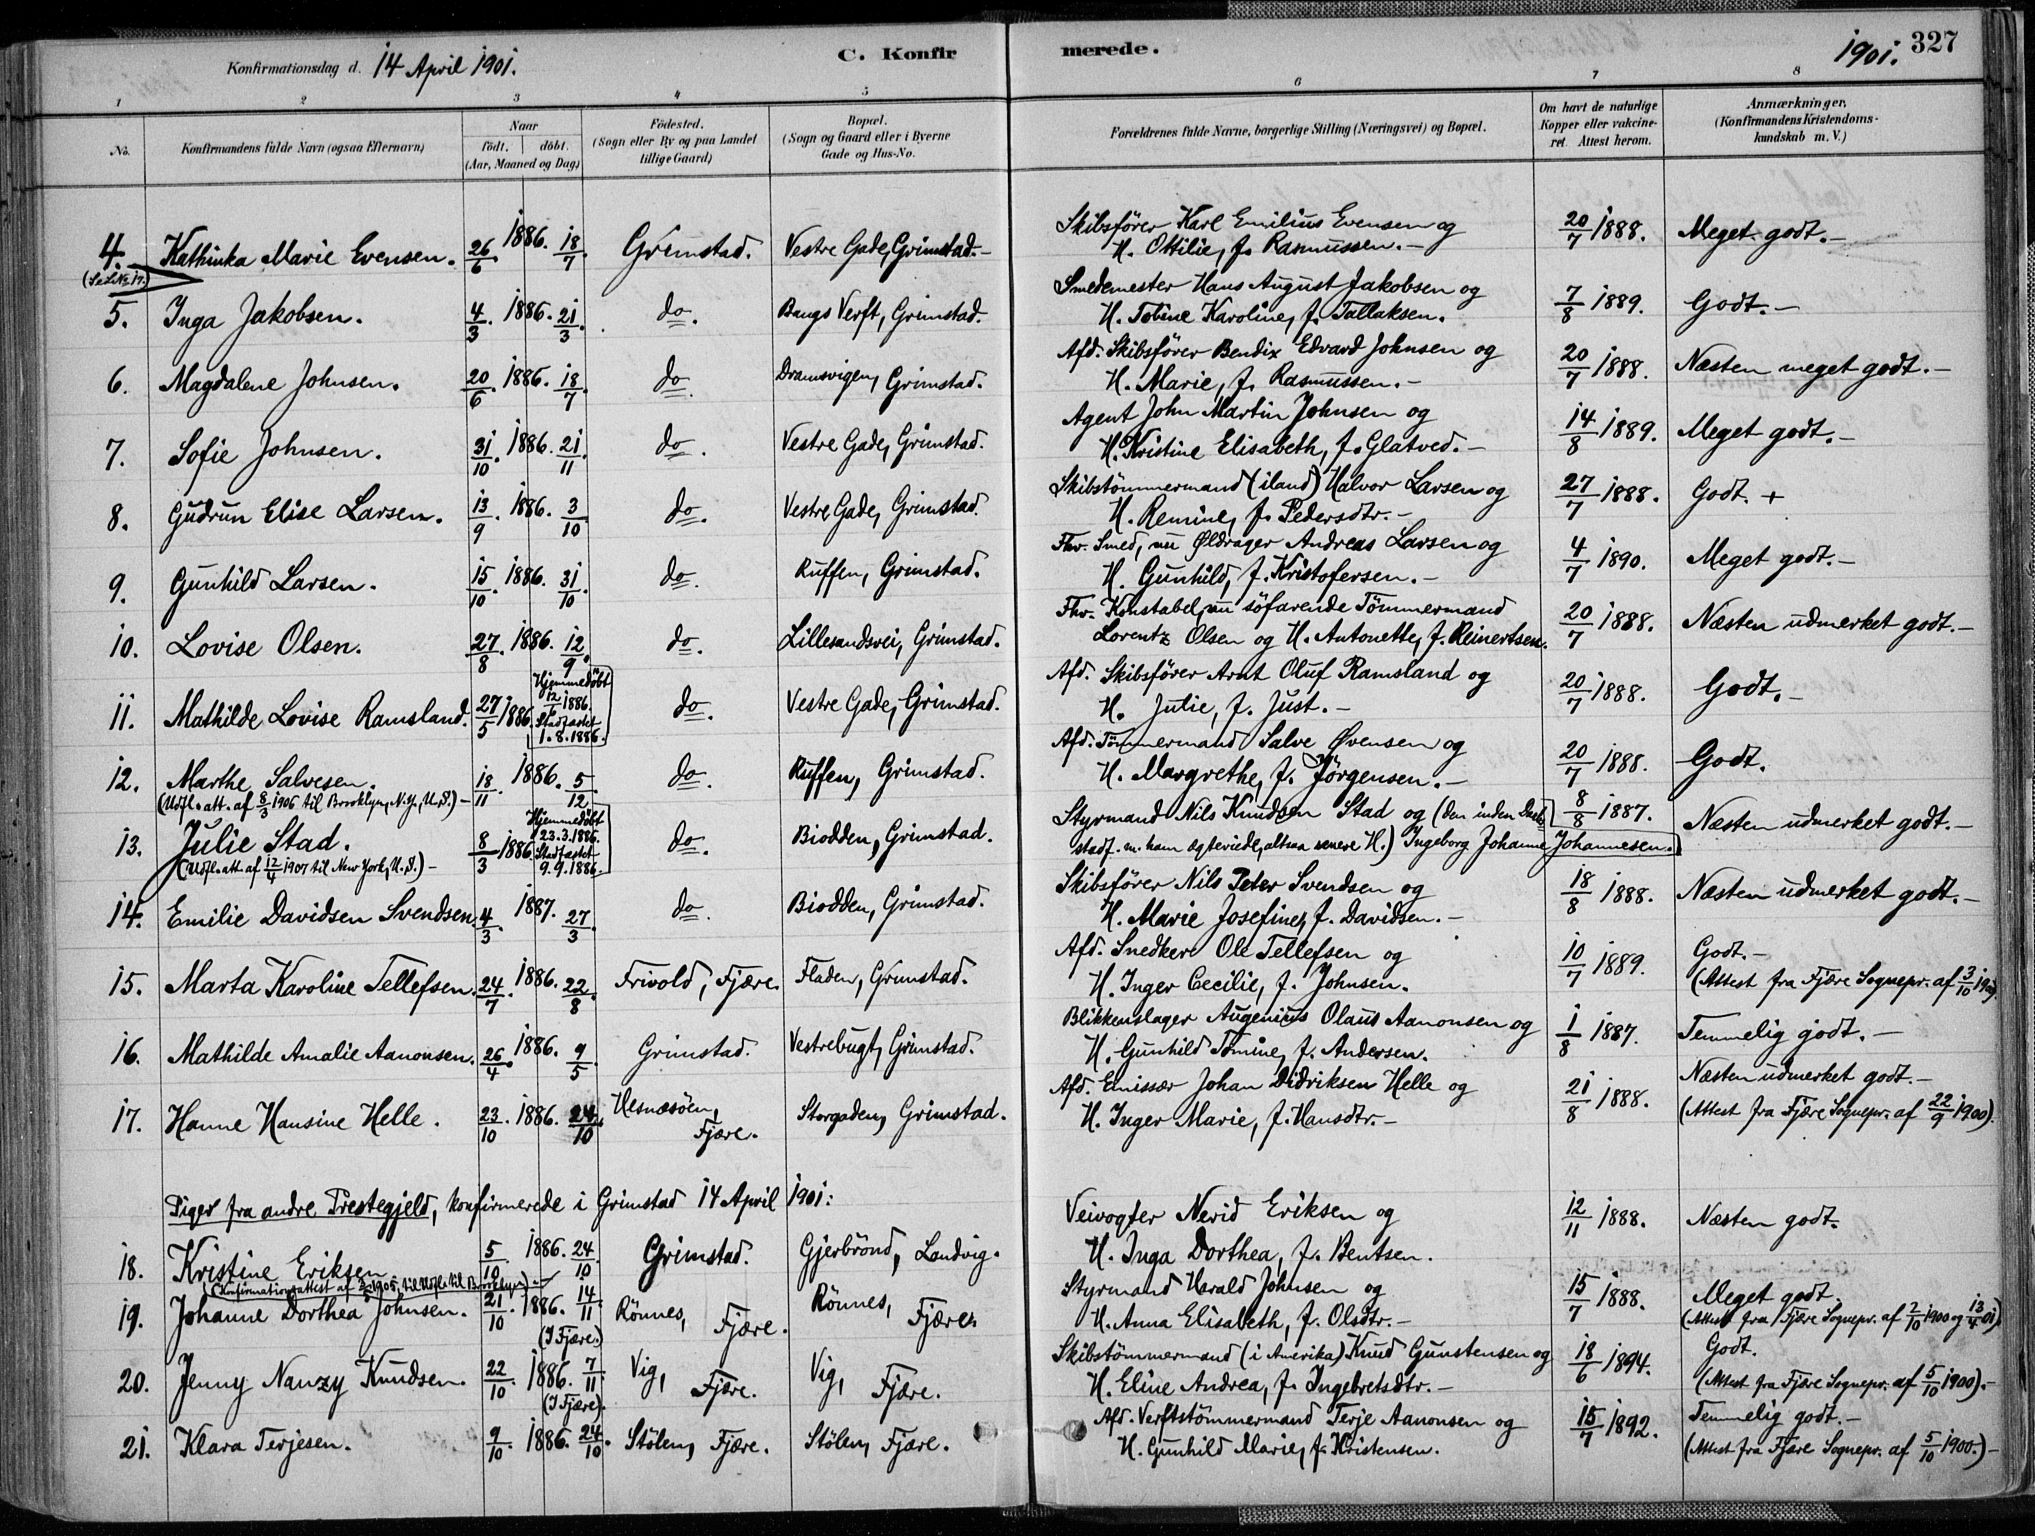 Konfirmationsdag d. 14 April 1901. C. Konfir merede. 1901. 327
1 2 3 4 5 6 7 8
No.
Konfirmandens fulde Navn (ogsaa Efternavn)
Naar
födt. döbt.
(Aar, Maaned og Dag)
Födested.
(Sogn eller By og paa Landet
tillige Gaard)
Bopæl.
(Sogn og Gaard eller i Byerne
Gade og Hus-No.
Forældrenes fulde Navne, borgerlige Stilling (Næringsvei) og Bopæl.
Om havt de naturlige
Kopper eller vakcine-
ret. Attest herom.
Anmærkninger.
(Konfirmandens Kristendoms-
kundskab m. V.)
4. Kathinka Marie Evensen. 26/6. 1886. 18/7. Grimstad. Vestre Gade, Grimstad.-
Skibsfører Karl Emilius Evensen og
H. Ottilie, f. Rasmussen.-
20/7 1888. Meget godt.-
5. Inga Jakobsen. 4/3. 1886. 21/3. do. Bangs Verft, Grimstad.
Smedemester Hans August Jakobsen og
H. Tobine Karoline, f. Tallaksen.
7/8 1889. Godt.-
6. Magdalene Johnsen. 20/6. 1886. 18/7. do Dramsvigen, Grimstad.
Afd. Skibsfører Bendix Edvard Johnsen og
H. Marie, f. Rasmussen.-
20/7 1888. Næsten meget godt.-
7. Sofie Johnsen. 31/10. 1886. 21/11. do. Vestre Gade, Grimstad.
Agent John Martin Johnsen og
H. Kristine Elisabeth, f. Glatved.-
14/8 1889. Meget godt.-
8. Gudrun Elise Larsen. 13/9. 1886. 3/10. do. Vestre Gade, Grimstad.
Skibstömmermand (iland) Halvor Larsen og
H. Remine, f. Pedersdtr.-
27/7 1888. Godt. +
9. Gunhild Larsen. 15/10. 1886. 31/10. do. Ruffen, Grimstad.
Fhv. Smed, nu Øldrager Andreas Larsen og
H. Gunhild, f. Kristofersen.-
4/7 1890. Meget godt.-
10. Lovise Olsen. 27/8. 1886. 12/9. do. Lillesandsvei, Grimstad.
Fhv. Konstabel, nu söfarende Tömmermand
Lorentz Olsen og H. Antonette, f. Reinertsen.
20/7 1888. Næsten udmerket godt.-
11. Mathilde Lovise Ramsland. 27/5 1886. Hjemmedöbt
12/6 1886.
Stadfæstet
1.8.1886. do. Vestre Gade, Grimstad.
Afd. Skibsfører Arnt Oluf Ramsland og
H. Julie, f. Just.-
20/7 1888. Godt.-
12. Marthe Salvesen. 18/11. 1886. 5/12. do. Ruffen, Grimstad.
(Udfl. att. af 8/3 1906 til Brooklyn, N.Y., U.S.)-
Afd. Tömmermand Salve Øvensen og
H. Margrethe, f. Jörgensen.-
20/7 1888. Godt.
13. Julie Stad. 8/3 1886. Hjemmedöbt
23.3.1886.
Stadfæstet
9.9.1886. do. Biodden, Grimstad.
(Udfl. att. af 12/4 1907 til New York, U.S.)-
Styrmand Nils Knudsen Stad og (den inden Daabs
stadf. m. ham ægteviede, altsaa senere H.) Ingeborg Johanne Johannesen.
8/8 1887. Næsten udmerket godt.-
14. Emilie Davidsen Svendsen. 4/3. 1887. 27/3. do. Biodden, Grimstad.
Skibsfører Nils Peter Svendsen og
H. Marie Josefine, f. Davidsen.-
18/8 1888. Næsten udmerket godt.-
15. Marta Karoline Tellefsen. 24/7. 1886. 22/8. Frivold, Fjære. Fladen, Grimstad.
Afd. Snedker Ole Tellefsen og
H. Inger Cecilie, f. Johnsen.
10/7 1889. Godt.-
(Attest fra Fjære Sognepr. af 3/10 1900)
16. Mathilde Amalie Aanonsen. 26/4. 1886. 9/5. Grimstad. Vestrebugt, Grimstad.
Blikkenslager Augenius Olaus Aanonsen og
H. Gunhild Tomine, f. Andersen.
1/8 1887. Temmelig godt.-
17. Hanne Hansine Helle. 23/10. 1886. 24/10. Hesnæsöen, Fjære. Storgaden, Grimstad.
Afd. Emissær Johan Didriksen Helle og
H. Inger Marie, f. Hansdtr.-
21/8 1888. Næsten udmerket godt.-
(Attest fra Fjære Sognepr. af 22/9 1900).
Piger fra andre Prestegjeld, konfirmerede i Grimstad 14 April 1901:
18. Kristine Eriksen 5/10. 1886. 24/10. Grimstad. Gjerbrönd, Landvig.
Veivogter Nerid Eriksen og
H. Inga Dorthea, f. Bentsen.
12/11 1888. Næsten godt.
19. Johanne Dorthea Johnsen. 21/10. 1886. 14/11. (I Fjære.) Rönnes, Fjære. Rönnes, Fjære.
Styrmand Harald Johnsen og
H. Anna Elisabeth, f. Olsdtr.-
15/7 1888. Meget godt.
(Attest fra Fjære Sognepr. af 2/10 1900 og 13/4 01)
20. Jenny Nanzy Knudsen. 22/10. 1886. 7/11. (I Fjære). Vig, Fjære. Vig, Fjære.
Skibstömmermand (i Amerika) Knud Gunstensen og
H. Eline Andrea, f. Ingebretsdtr.-
18/6 1894. Godt.
(Attest fra Fjære Sognepr. af 5/10 1900).-
21. Klara Terjesen. 9/10. 1886. 24/10. Stölen, Fjære. Stölen, Fjære.
Afd. Verftstömmermand Terje Aanonsen og
H. Gunhild Marie, f. Kristensen.
15/7 1892. Temmelig godt.-
(Attest fra Fjære Sognepr. af 5/10 1900.)-